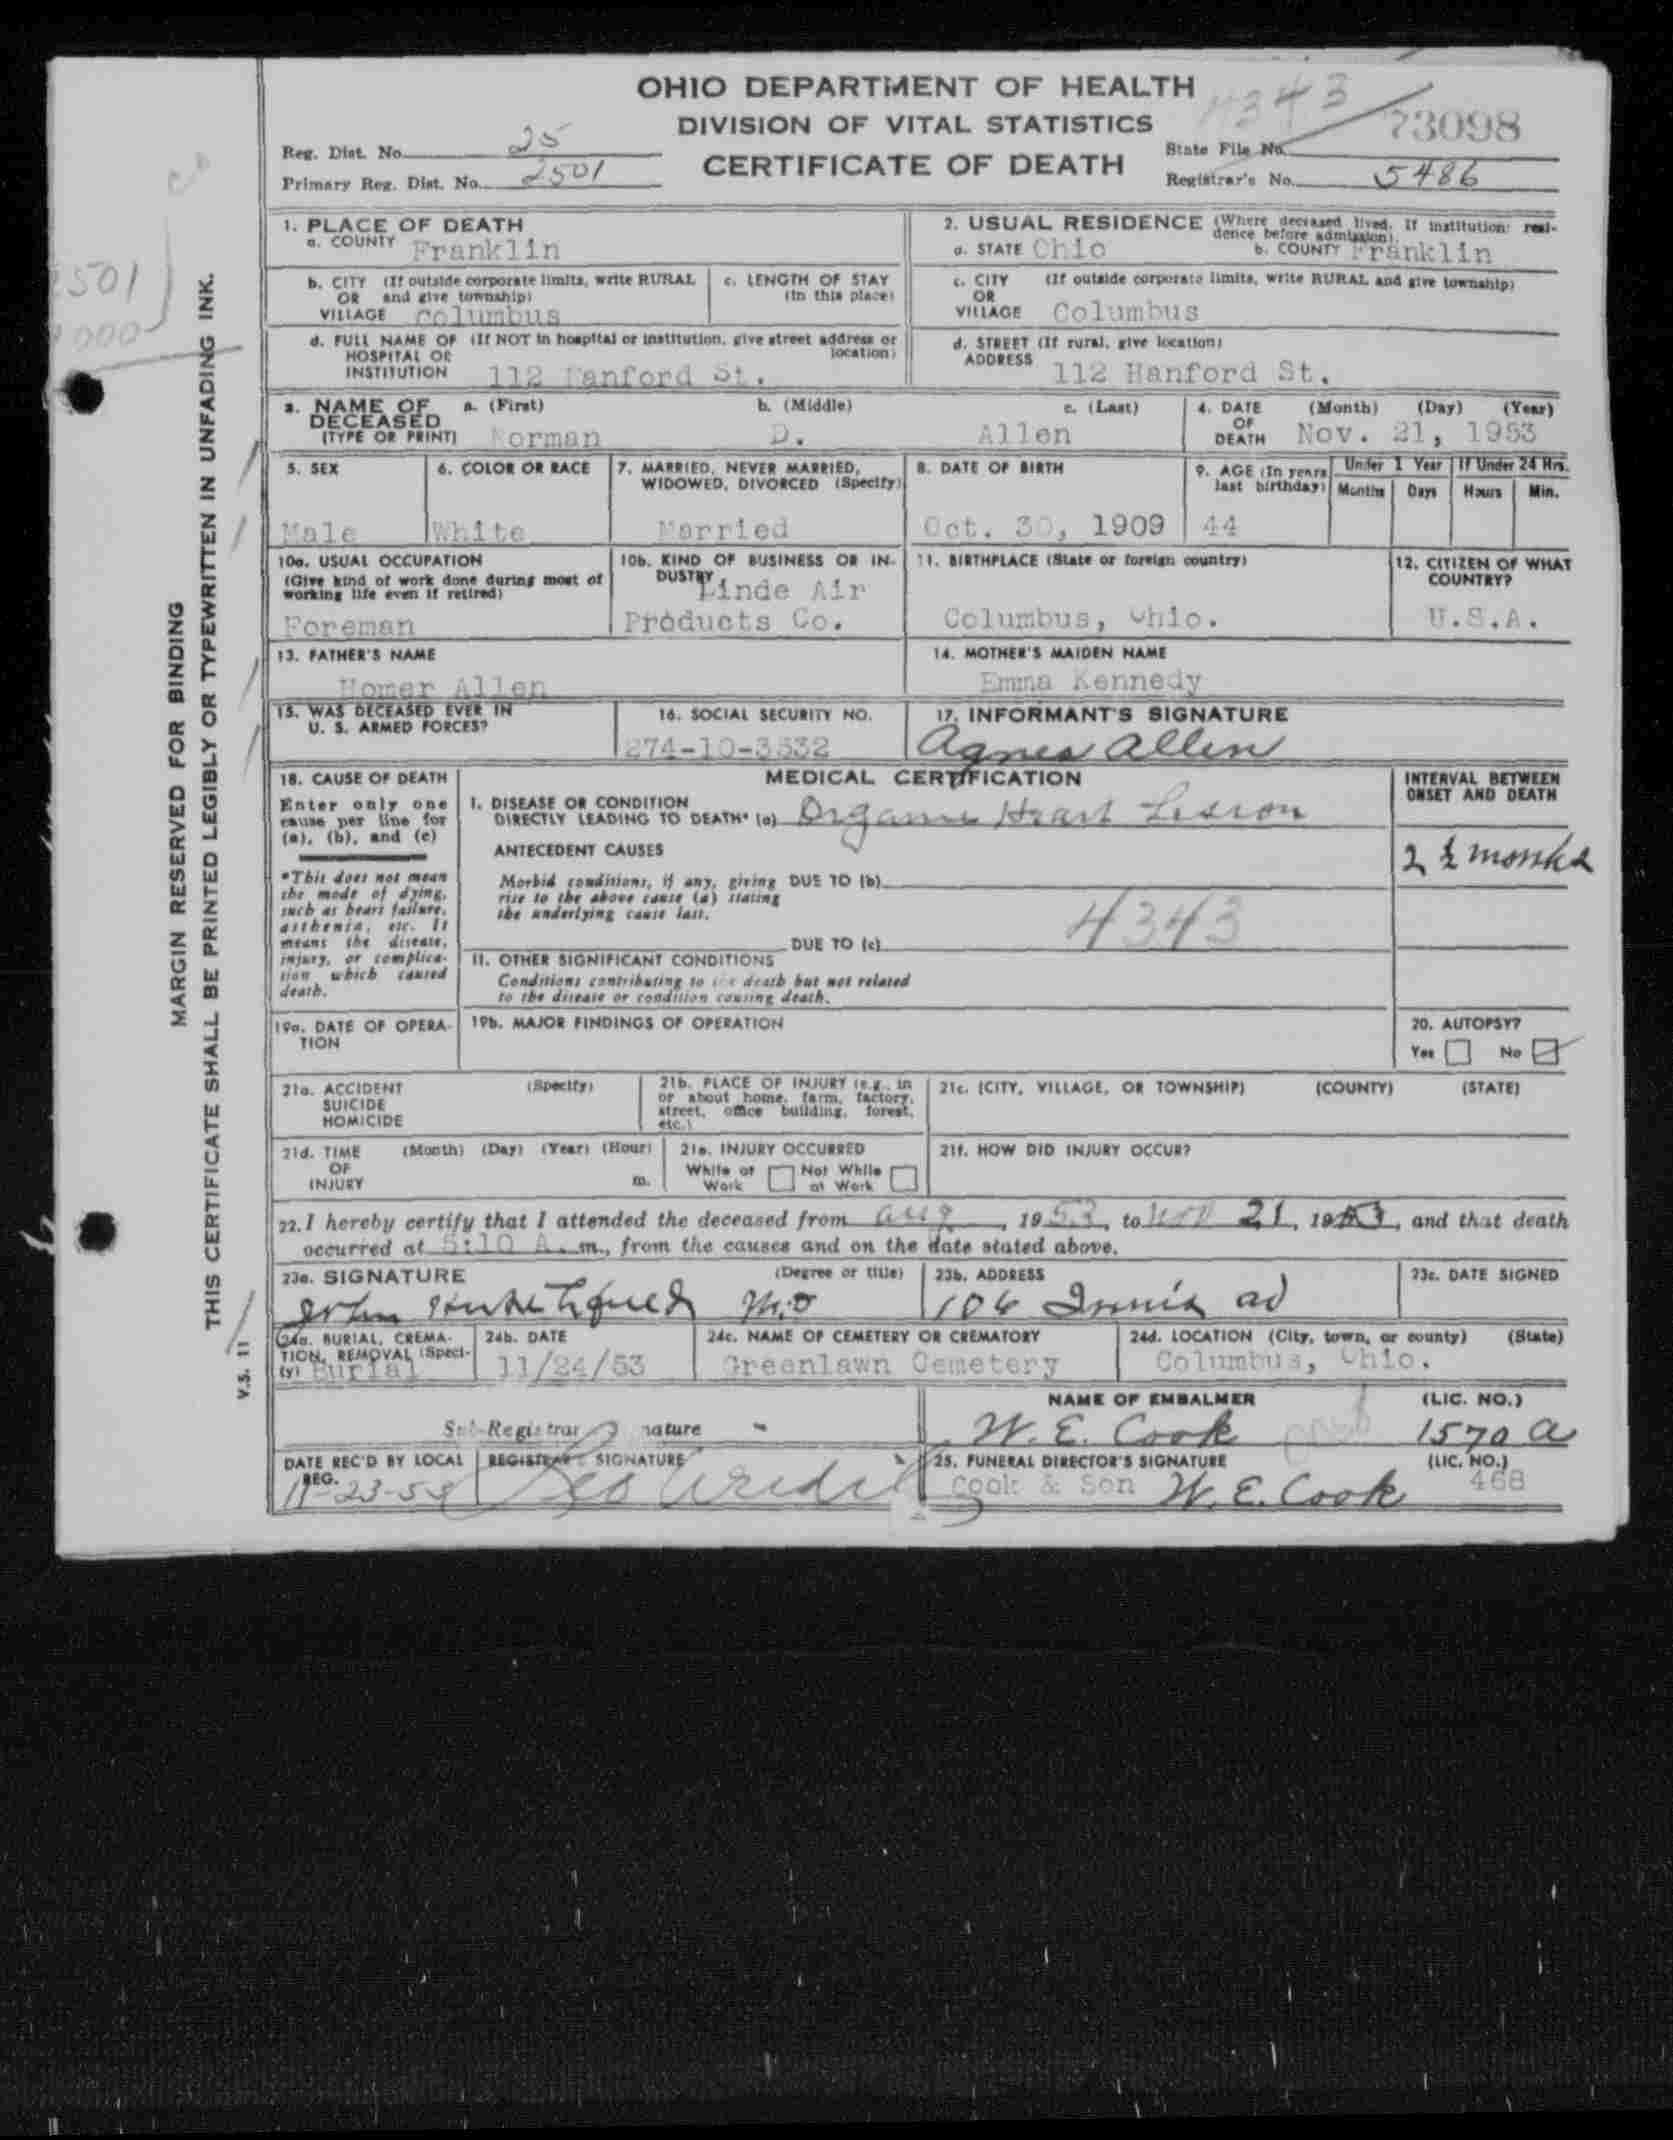 OHIO DEPARTMENT OF HEALTH
DIVISION OF VITAL STATISTICS
CERTIFICATE OF DEATH
4343
73098
Reg. Dist. No. 25
Primary Reg. Dist. No. 2501
State File No.
Registrar's No. 5486
2501
MARGIN RESERVED FOR BINDING
THIS CERTIFICATE SHALL BE PRINTED LEGIBLY OR TYPEWRITTEN IN UNFADING INK.
V.S. 11
1. PLACE OF DEATH
a. COUNTY Franklin
2. USUAL RESIDENCE (Where deceased lived. If institution: residence before admission).
a. STATE Ohio b. COUNTY Franklin
b. CITY (If outside corporate limits, write RURAL
OR and give township)
VILLAGE Columbus
c. LENGTH OF STAY
(in this place)
c. CITY (If outside corporate limits, write RURAL and give township)
OR
VILLAGE Columbus
d. FULL NAME OF (If NOT in hospital or institution, give street address or
HOSPITAL OR location)
INSTITUTION 112 Hanford St.
d. STREET (If rural, give location)
ADDRESS 112 Hanford St.
3. NAME OF DECEASED (TYPE OR PRINT)
a. (First) Norman
b. (Middle) D.
c. (Last) Allen
4. DATE OF DEATH (Month) (Day) (Year)
Nov. 21, 1953
5. SEX
Male
6. COLOR OR RACE
White
7. MARRIED, NEVER MARRIED,
WIDOWED, DIVORCED (Specify)
Married
8. DATE OF BIRTH
Oct. 30, 1909
9. AGE (In years
last birthday)
44
Under 1 Year
Months Days
If Under 24 Hrs.
Hours Min.
10a. USUAL OCCUPATION
(Give kind of work done during most of
working life even if retired)
Foreman
10b. KIND OF BUSINESS OR INDUSTRY
Linde Air
Products Co.
11. BIRTHPLACE (State or foreign country)
Columbus, Ohio.
12. CITIZEN OF WHAT
COUNTRY?
U.S.A.
13. FATHER'S NAME
Homer Allen
14. MOTHER'S MAIDEN NAME
Emma Kennedy
15. WAS DECEASED EVER IN
U. S. ARMED FORCES?
16. SOCIAL SECURITY NO.
274-10-3532
17. INFORMANT'S SIGNATURE
Agnes Allen
18. CAUSE OF DEATH
Enter only one
cause per line for
(a), (b), and (c)
*This does not mean
the mode of dying,
such as heart failure,
asthenia, etc. It
means the disease,
injury, or complica-
tion which caused
death.
MEDICAL CERTIFICATION
I. DISEASE OR CONDITION
DIRECTLY LEADING TO DEATH* (a) Organic Heart Lesion
ANTECEDENT CAUSES
Morbid conditions, if any, giving DUE TO (b)
rise to the above cause (a) stating
the underlying cause last.
4343
DUE TO (c)
II. OTHER SIGNIFICANT CONDITIONS
Conditions contributing to the death but not related
to the disease or condition causing death.
INTERVAL BETWEEN
ONSET AND DEATH
2 1/2 months
19a. DATE OF OPERA-
TION
19b. MAJOR FINDINGS OF OPERATION
20. AUTOPSY?
Yes No
21a. ACCIDENT (Specify)
SUICIDE
HOMICIDE
21b. PLACE OF INJURY (e.g., in
or about home, farm, factory,
street, office building, forest,
etc.)
21c. (CITY, VILLAGE, OR TOWNSHIP) (COUNTY) (STATE)
21d. TIME (Month) (Day) (Year) (Hour)
OF
INJURY m.
21e. INJURY OCCURRED
While at Work Not While at Work
21f. HOW DID INJURY OCCUR?
22. I hereby certify that I attended the deceased from Aug, 1953, to Nov 21, 1953, and that death
occurred at 5:10 A. m., from the causes and on the date stated above.
23a. SIGNATURE (Degree or title)
John M.D
23b. ADDRESS
106 Innis
23c. DATE SIGNED
24a. BURIAL, CREMA-
TION, REMOVAL (Speci-
fy) Burial
24b. DATE
11/24/53
24c. NAME OF CEMETERY OR CREMATORY
Greenlawn Cemetery
24d. LOCATION (City, town, or county) (State)
Columbus, Ohio.
Sub-Registrar Signature
NAME OF EMBALMER (LIC. NO.)
W. E. Cook 1570 A
DATE REC'D BY LOCAL
REG.
11-23-53
REGISTRAR'S SIGNATURE
25. FUNERAL DIRECTOR'S SIGNATURE (LIC. NO.)
Cook & Son W. E. Cook 468